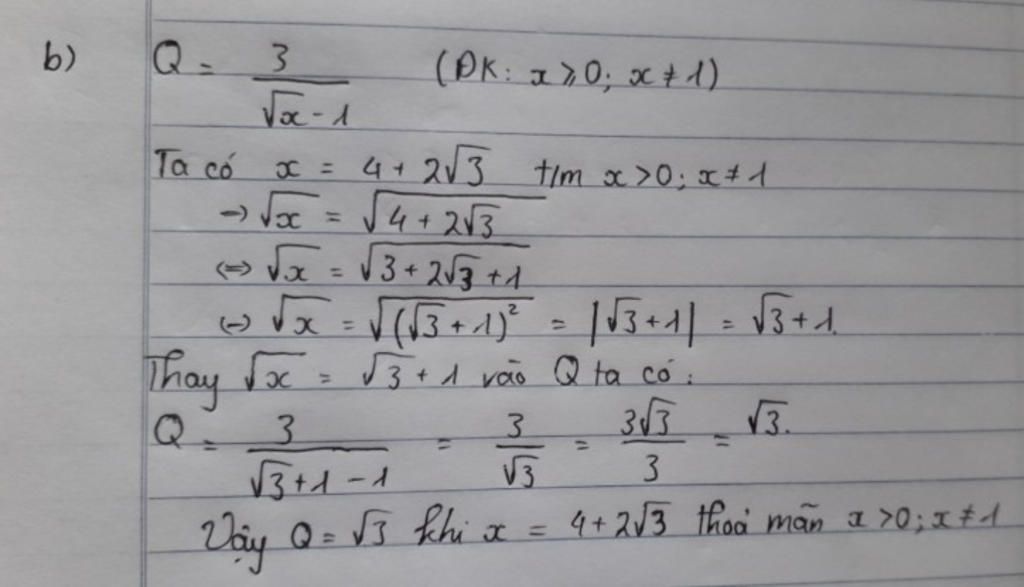 b) Q = 3/(√x - 1) (ĐK: x ≥ 0; x ≠ 1)
Ta có x = 4 + 2√3 t/m x > 0; x ≠ 1
→ √x = √(4 + 2√3)
⇔ √x = √(3 + 2√3 + 1)
↔ √x = √((√3 + 1)²) = |√3 + 1| = √3 + 1.
Thay √x = √3 + 1 vào Q ta có:
Q = 3/(√3 + 1 - 1) = 3/√3 = 3√3/3 = √3.
Vậy Q = √3 khi x = 4 + 2√3 thoả mãn x > 0; x ≠ 1